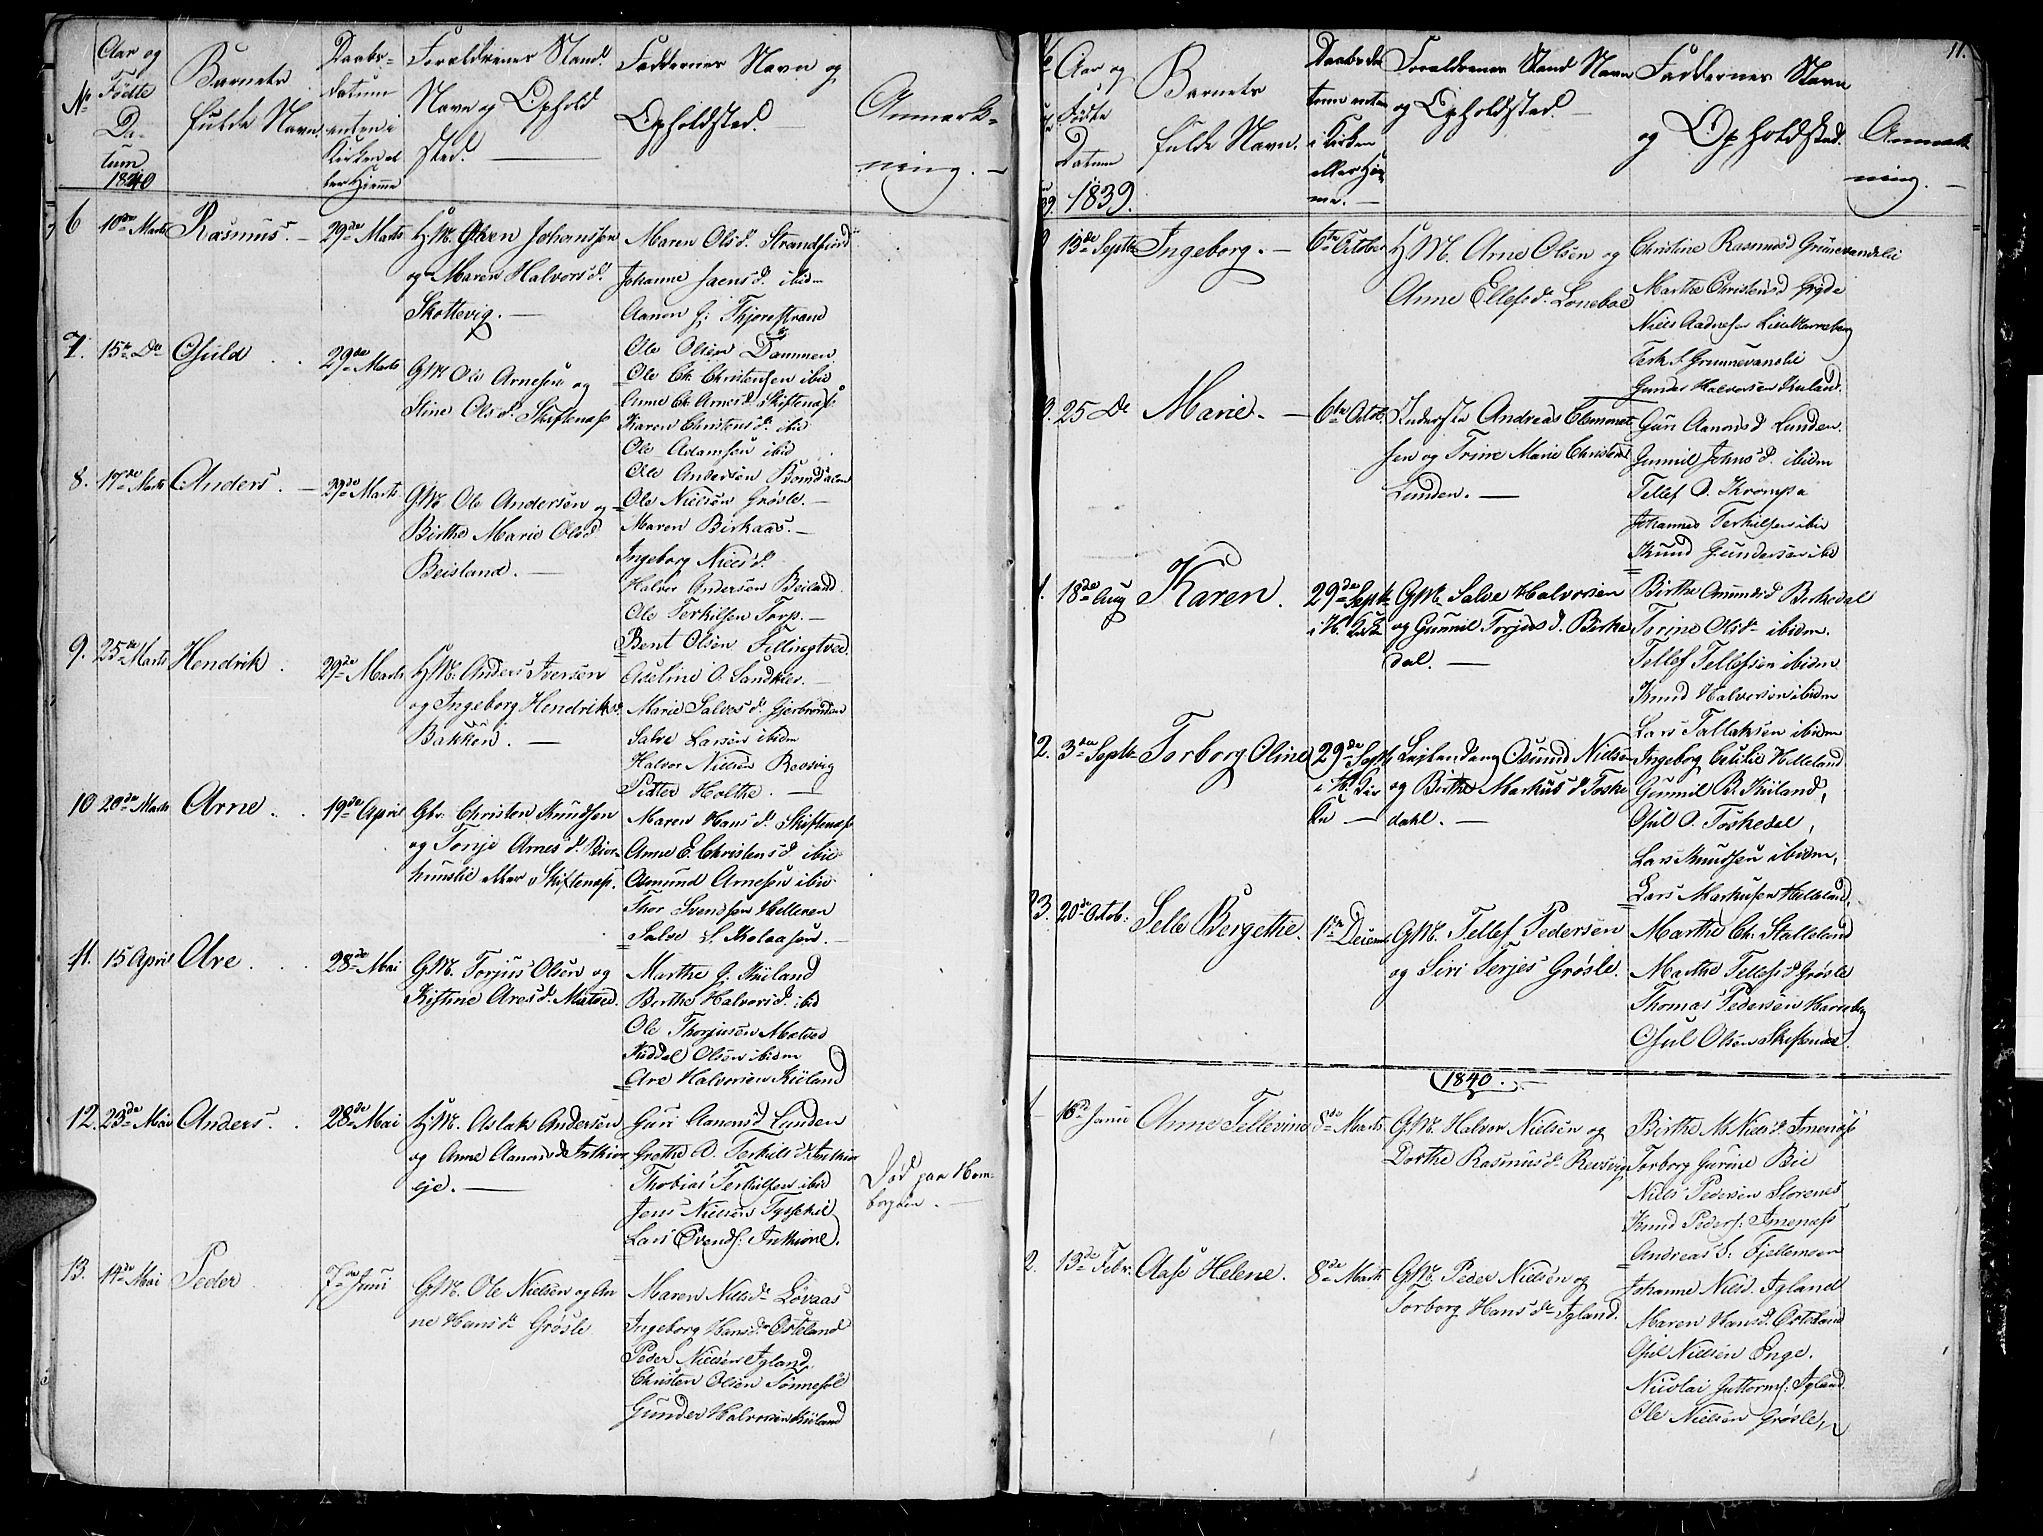 No
Aar og
Fødte
Da-
tum
1840
Barnets
fulde Navn
Daabs-
datum
enten i
Kirken el
ler Hjemme
Forældrenes Stand
Navn og Ophold
sted.
Faddernes Navn og
Opholdsted.
Anmærk-
ning.
6
10de Marts
Rasmus.
29de Marts
Maren Halvorsd.
Maren Olsd. Strandfiord
og Maren Halvorsd.
Skottevig.
Johanne Jaensd. ibidm
Aanon Thjorestrand
Ole Olsen Dammen
7.
15de Do
Osuld
29de Marts
GM Ole Arnesen og
Stine Olsd. Skiftenæs
Ole Chr. Christensen ibid
Anne Arnesd. Skiftenæs
Karen Christensd. ibid
Ole Adamsen ibid
Ole Andersen Bomdalen
8.
17de Marts
Anders.
29de Marts
GM. Ole Andersen og
Birthe Marie Olsd
Beisland.
Ole Nielsen Grøsle.
Maren Birkaas.
Ingeborg Nielsd.
Halvor Andersen Beiland.
Ole Terkilsen Torp.
9.
25de Marts
Hendrik.
29de Marts
HM. Anders Iversen
og Ingeborg Hendriksd.
Bakken.
Bent Olsen Fillingtved
Aseline O. Sandkler.
Marie Salvesd. Gjerbrønden
Salve Larsen ibidm
Halvor Nielsen Revsvig
Petter Holthe.
10
20de Marts
Arne
19de April
Gbr. Christen Knudsen
og Tonje Arnesd.
eller Skiftenæs.
Maren Hansd. Skiftenæs
Anne E. Christensd. ibid
Osmund Arnesen ibid
Thor Svendsen Helleren
Salve S. Kolaasen.
11.
15 April
Are
28de Mai
GM. Torjus Olsen og
Kistine Aresd. Mistved
Marthe G. Kiland
Berthe Halvorsd. ibid
Ole Thorjusen Møtved
Kiddel Olsen ibidem
Are Halvorsen Kiiland
12.
23de Mai
Anders.
28de Mai
HM. Aslak Andersen
og Anne Aanonsd. Inthior
eje.
Guri Aanonsd Lunden
Grethe O. Terkilsd. Inthior
Thobias Terkilsen ibid
Jens Nielsen Tysskil
Lars Evends. Inthiore.
Død paa Hom-
borgøen.
13.
14de Mai
Peder
7de Juni
GM. Ole Nielsen og An
ne Hansd. Grøsle
Maren Nielsd. Løvaas
Ingeborg Hansd. Østeland
Peder Nielsen Igland
Christen Olsen Tønnesøl
Gunder Halvorsen Kiiland
11.
Aar og
Fødte
Datum
1839.
Barnets
fulde Navn.
Daabs da
tum enten
i Kirken
eller Hje
me.
Forældrenes Stand Navn
og Opholdsted.
Faddernes Navn
og Opholdsted.
Anmærk
ning.
13de Septbr
Ingeborg.
6te October
HM. Arne Olsen og
Anne Ellefsd. Loneboe
Christine Rasmusd Grønnevandslie
Marthe Christensd Gryde
Niels Aadnesen
Terk S. Grunnevanslie
Gunder Halvorsen Kiiland.
25 Do
Marie.
6te Octob.
Inderste Andreas Clemmet
sen og Trine Marie Christensd
Lunden.
Guri Aanonsd Lunden
Gunnil Johnsd. ibidem
Tellef O. Krompa
Johannes Terkilsen ibid
Knud Gundersen ibid
18de Aug
Karen.
29de Septbr
i H. Kirke
GM. Salve Halvorsen
og Gunnil Torjusd. Birke
dal.
Birthe Omundsd Birkedal
Torine Olsd. ibidm.
Tellef Tellefsen ibidem
Knud Halvorsen ibidm
Lars Tallaksen ibidm
2.
3die Septbr
Torborg Oline
29de Sept.
i H. Kir
ke
Leilænding Osmund Nielsen
og Birthe Markusd. Toske
dahl.
Ingeborg Cecilie Hilleland
Gunnil B. Kiiland,
Osul O. Toskedal,
Lars Knudsen ibidm,
Lars Markusen Hilleland,
3.
20de Octob.
Selle Bergethe.
1ste Decemb
GM. Tellef Pedersen
og Siri Terjes Grøsle.
Marthe Chr. Stalleland
Marthe Tellefsd. Grøsle
Thomas Pedersen Harreberg
Osul Olsen Skiftenæs.
1840.
1
16de Janu
Anne Tellevine
8de Marts
GM. Halvor Nielsen og
Dorthe Rasmusd. Revsvig
Birthe M. Nielsd. Imenæs
Torborg Gurine Bie
Niels Pedersen Storenes
Knud Peders. Imenæss
Andreas S. Fjellemoen
2.
13de Febr.
Aase Helene.
8de Marts
GM. Peder Nielsen og
Torborg Hansd. Igland.
Johanne Nielsd. Igland
Maren Hansd. Østeland
Osul Nielsen Enge.
Nicolai Guttorms. Igland
Ole Nielsen Grøsle